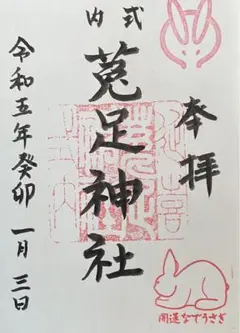 奉拝
式内
菟足神社
令和五年癸卯 一月三日
開運なでうさぎ